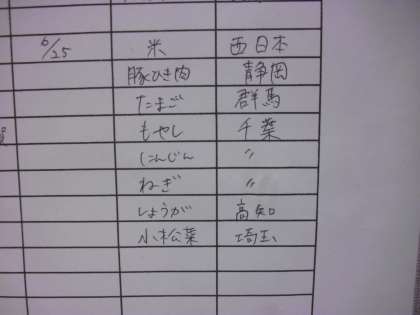 6/25 米 西日本
豚ひき肉 静岡
たまご 群馬
もやし 千葉
にんじん 〃
ねぎ 〃
しょうが 高知
小松菜 埼玉